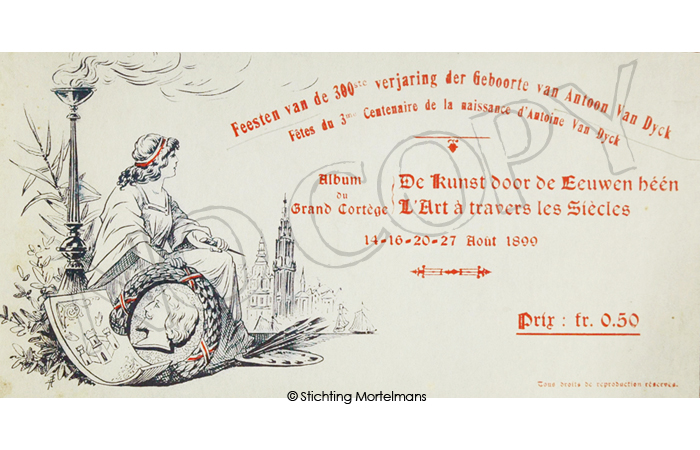 Feesten van de 300ste verjaring der Geboorte van Antoon Van Dyck
Fêtes du 3me Centenaire de la naissance d'Antoine Van Dyck
Album
du
Grand Cortège
De Kunst door de Eeuwen héén
L'Art à travers les Siècles
14-16-20-27 Août 1899
Prix : fr. 0.50
Tous droits de reproduction réservés.
NO COPY
© Stichting Mortelmans